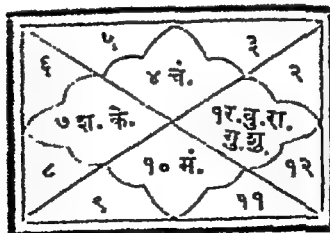 ५ ३
६ ४ चं. २
७ श. के. १र. बु. रा.
गु. शु.
८ १० मं. १२
९ ११